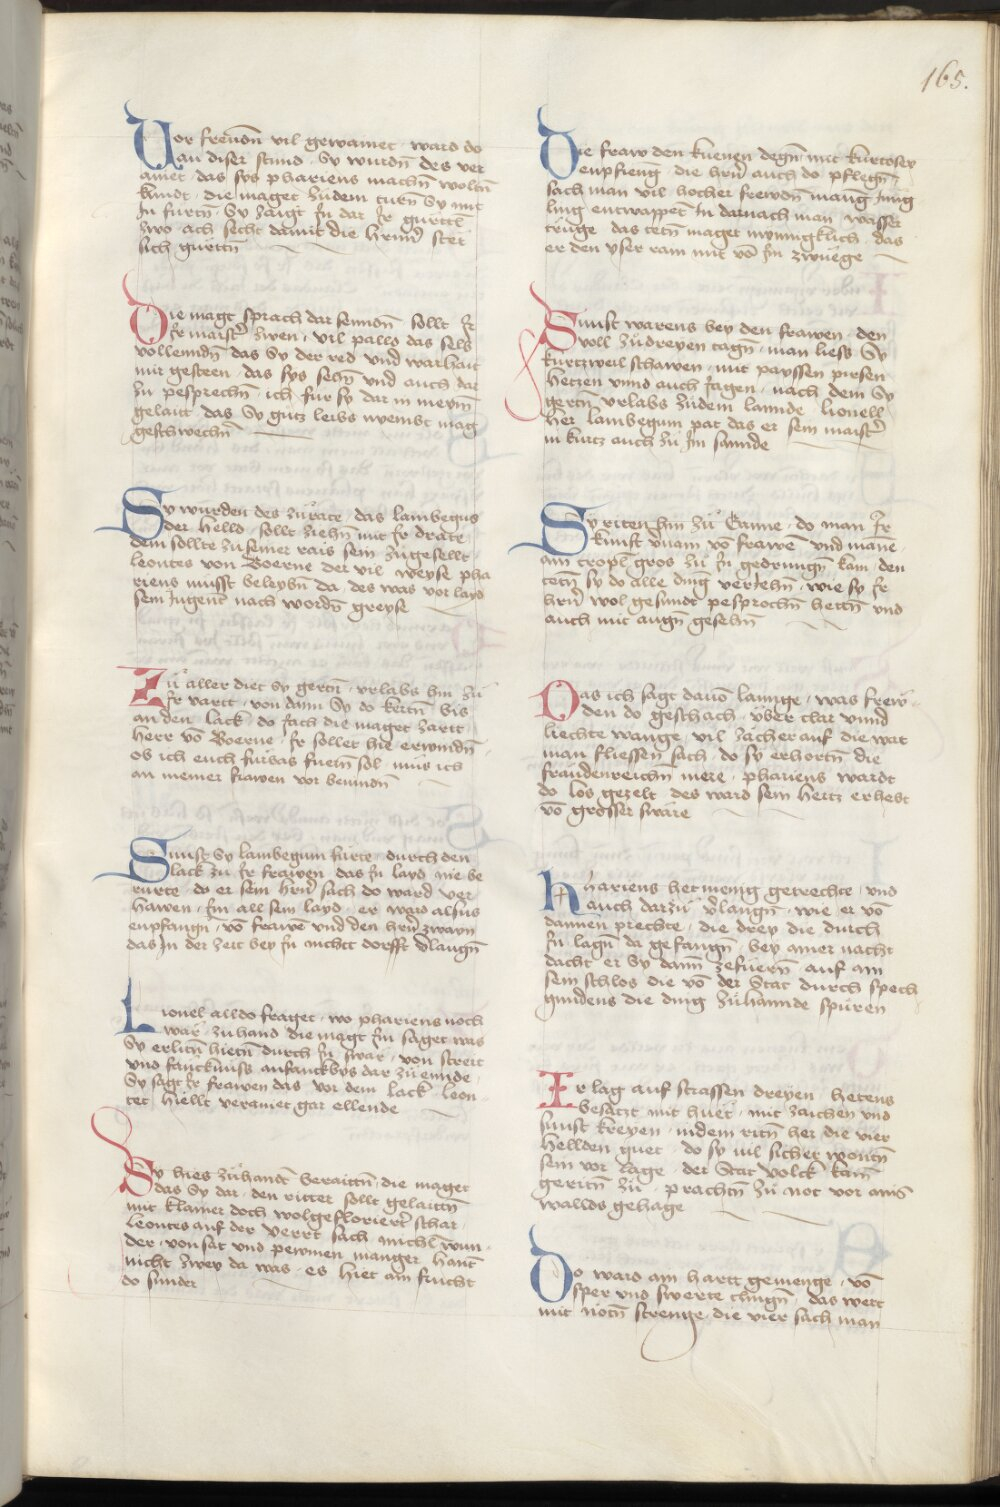 165.
Vor frewdn̄ vil gewainet · ward do
an diser stund · Sy wurdn̄ des ver
ainet · das sys phariens machn̄ woltn̄
kundt · die maget zu dem turn Sy mit
In furtn̄ · Sy zaigt In dar Ir gurttl
zwo ach secht damit die herrn̄ stet
sich gurttn̄
Die magt sprach dar senndn̄ sollt Ir
Ir maistr̄ zwen · vil palld das sels
vollenndn̄ das Sy der red vnd warhait
mir gesteen · das sys sehn̄ vnd auch dar
zu pesprechn̄ · ich fur sy dar in meym̄
gelaitt · das Sy gutz leibs nyembt mag
geschwechn̄
Sy wurden des zu rate · das lambegus
der helld · sollt ziehn̄ mit Ir drate
dem sollte zu seiner rais sein zu gesellt
leontes von Boerne der vil weyse pha
riens musst beleybn̄ da · des was vor layd
sein Jugent nach wordn̄ greyse
Zu aller diet Sy gertn̄ · vrlabs hin zu
Ir vartt · von dann Sy do kertn̄ bis
an den lack · do sach die maget zartt
herr vō Boerne · Ir sollet hie erwindn̄
ob ich euch furbas fuern̄ sol · mus ich
an meiner frawen vor beuindn̄
Sunst Sy lambegum furte · durch den
lack zu Ir frawen das In layd nie be
rurte · do er sein herr̄ sach do ward ver
hawen · Im all sein layd · er ward alsus
enpfangn̄ · vō frawē vnd den herr̄ zwayn
das In der zeit bey In nichtt dorfft v̄langn̄
Lionel alldo fraget · wo phariens noch
war · zu hand die magt Im saget was
Sy erlitn̄ hietn̄ durch In swar · von streit
vnd fancknuss anfanckbys dar zu ennde
Sy sagt Ir frawen das vor dem lack leon
tes hiellt veraint gar ellende
Sy hies zu handt beraittn̄ · die maget
das Sy dar · den ritter sollt gelaittn̄
mit klainer doch wolgeflorierter schar ·
Leontes auf der verrt sach michl wun
der · von sat vnd pewmen manger hant
nicht zwey da was · es hiet ain frucht
do sunder
Die fraw den kuenen degn̄ mit kurtosey
enpfieng · die herr̄ auch do pflegn̄
sach man vil hocher frewdn̄ manig Jung
ling entwappet In darnach man wasser
truge · das tetn̄ maget mynnigklich · das
er den yser ram mit vō Im zwuege
Sunst warens bey den frawen · den
voll zu dreyen tagn̄ · man liess Sy
kurtzweil schawen · mit payssen pirsen
hetzen vnnd auch Jagen · nach dem Sy
gertn̄ vrlabs zu dem lannde · lionell
her lambegum pat das er sein maistr̄
in kurtz auch zu Im sannde
Sy riten hin zu Ganne · do man Ir
kunft vnam vō frawē vnd manē
ain tropl gros zu In gedrungn̄ kam · den
tetn̄ sy do alle ding veriehn̄ · wie sy Ir
herr̄ wol gesundt pesprochn̄ hettn̄ vnd
auch mit augn̄ gesehn̄
Das ich sagt dauō lannge · was frew
den do geschach · vber clar vnnd
liechte wange · vil zächer auf die wat
man fliessen sach · do sy erhortn̄ die
fraudenreichn̄ mere · phariens wardt
do los gezelt · des ward sein hertz erhebt
vō grosser sware
Phariens het menig getrechte · vnd
auch darzu v̄langn̄ · wie er vō
dannen prechte · die drey die durch
In lagn̄ da gefangn̄ · bey ainer nacht
dacht er Sy dann zefuern̄ auf ain
sein schlos die vō der Stat durch spech
gundens die ding zu hannde spuren
Er lag auf strassen dreyen · hetens
besatzt mit huet · mit zaichen vnd
sunst kreyen · indem ritn̄ her die vier
hellden guet · do sy nil sicher wontn̄
sein vor lage · der Stat volck kam̄
geritn̄ zu · prachtn̄ zu not vor ains
wallds gehage
Do ward ain hartt gemenge · vō
sper vnd swerte clingn̄ · das wert
mit notn̄ strenge · die vier sach man